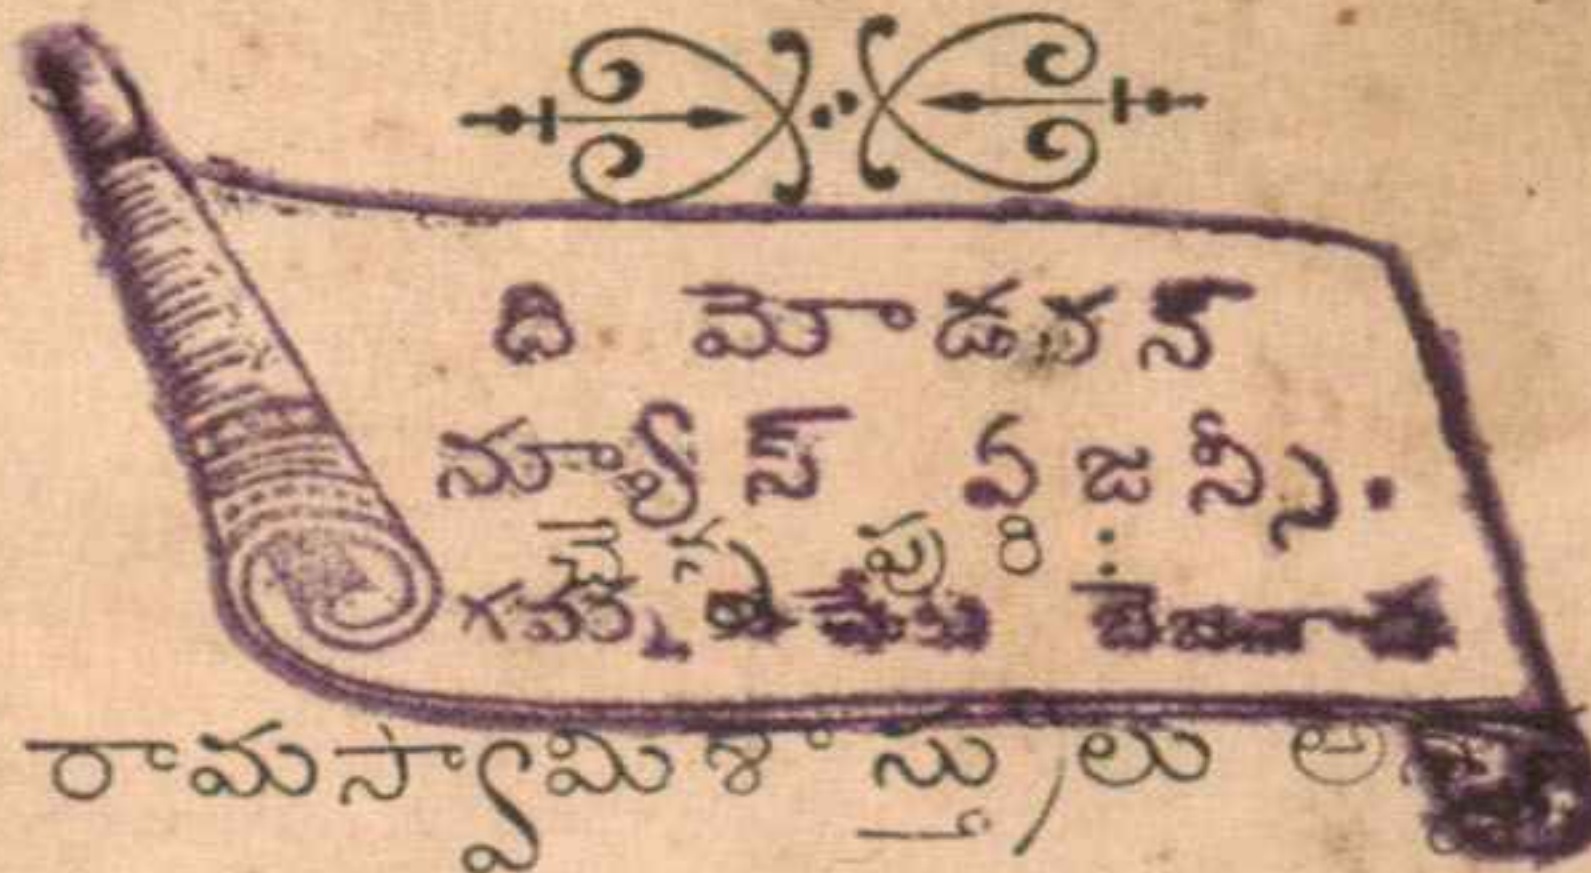 ది మోడరన్
న్యూస్ ఏజన్సీ.
చెన్నపురి:
గవర్నరుపేట బెజవాడ
రామస్వామిశాస్త్రులు